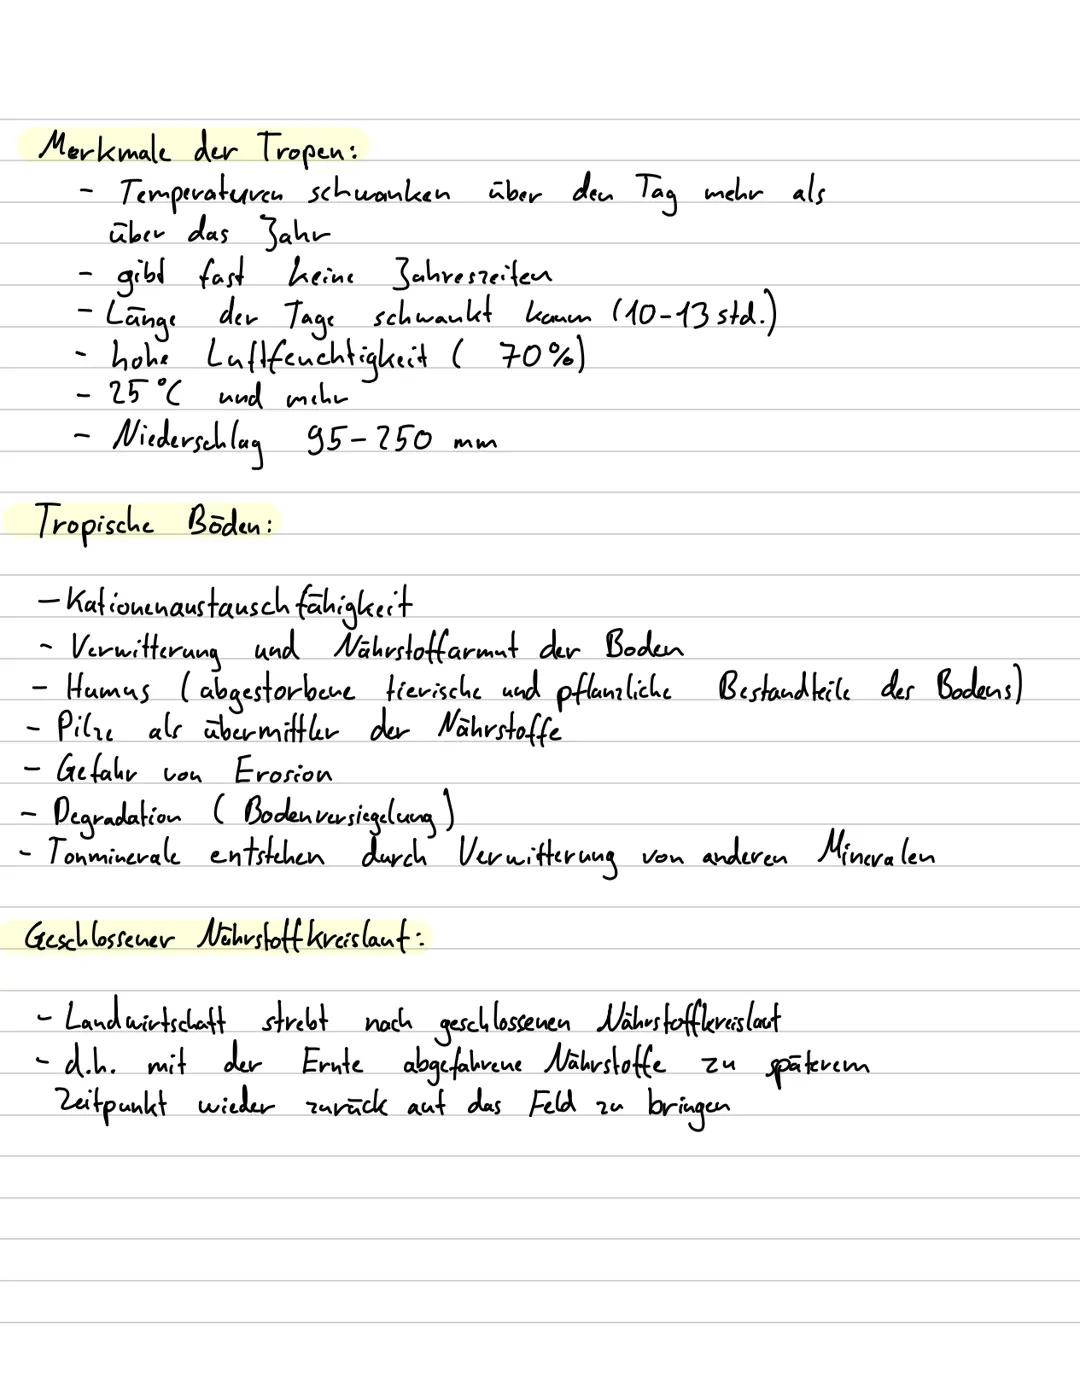 Merkmale der Tropen:
- Temperaturen schwanken über den Tag mehr als
über das Jahr
- gibt fast keine Jahreszeiten
- Länge der Tage schwankt kaum (10-13 std.)
- hohe Luftfeuchtigkeit ( 70%)
- 25°C und mehr
- Niederschlag 95-250 mm
Tropische Böden:
- Kationenaustauschfähigkeit
- Verwitterung und Nährstoffarmut der Boden
- Humus (abgestorbene tierische und pflanzliche Bestandteile des Bodens)
- Pilze als übermittler der Nährstoffe
- Gefahr von Erosion
- Degradation (Bodenversiegelung)
- Tonminerale entstehen durch Verwitterung von anderen Mineralen
Geschlossener Nährstoffkreislauf:
- Landwirtschaft strebt nach geschlossenen Nährstoffkreislauf
- d.h. mit der Ernte abgefahrene Nährstoffe zu späterem
Zeitpunkt wieder zurück auf das Feld zu bringen